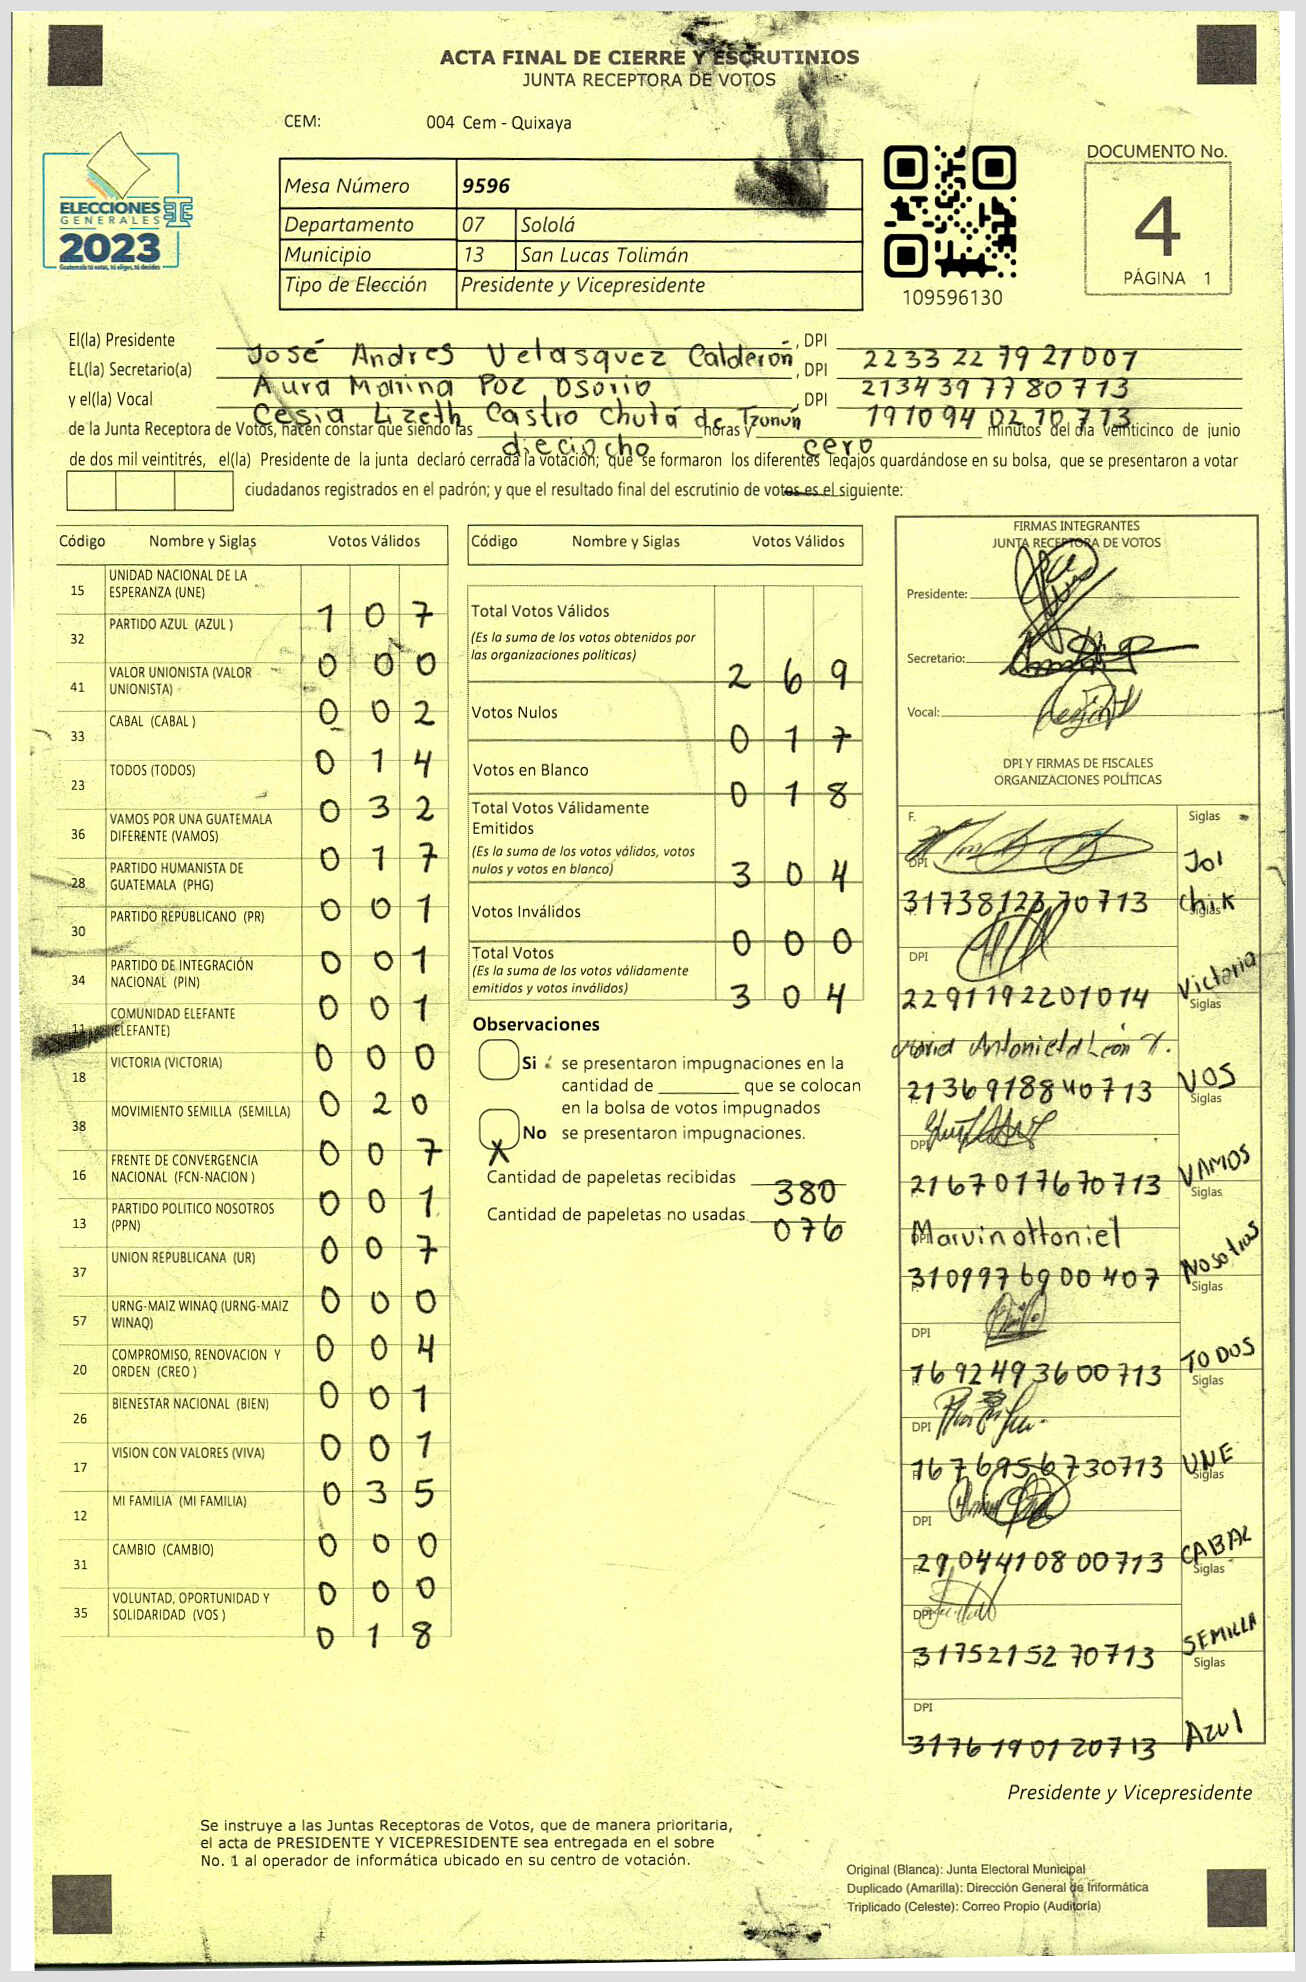 ACTA FINAL DE CIERRE Y ESCRUTINIOS
JUNTA RECEPTORA DE VOTOS
CEM: 004 Cem - Quixaya
ELECCIONES
GENERALES
2023
Guatemala tú votas, tú eliges, tú decides
Mesa Número 9596
Departamento 07 Sololá
Municipio 13 San Lucas Tolimán
Tipo de Elección Presidente y Vicepresidente
109596130
DOCUMENTO No.
4
PÁGINA 1
El(la) Presidente José Andres Velasquez Calderón, DPI 2233 22 79 21 007
EL(la) Secretario(a) Aura Marina Poz Osorio, DPI 2134 39 77 80 713
y el(la) Vocal Cesia Lizeth Castro Chutá de Tzunún, DPI 191094 02 10 713
de la Junta Receptora de Votos, hacen constar que siendo las dieciocho horas y cero minutos del día veinticinco de junio
de dos mil veintitrés, el(la) Presidente de la junta declaró cerrada la votación; que se formaron los diferentes legajos quardándose en su bolsa, que se presentaron a votar
ciudadanos registrados en el padrón; y que el resultado final del escrutinio de votos es el siguiente:
Código Nombre y Siglas Votos Válidos
15 UNIDAD NACIONAL DE LA ESPERANZA (UNE) 1 0 7
32 PARTIDO AZUL (AZUL ) 0 0 0
41 VALOR UNIONISTA (VALOR UNIONISTA) 0 0 2
33 CABAL (CABAL ) 0 1 4
23 TODOS (TODOS) 0 3 2
36 VAMOS POR UNA GUATEMALA DIFERENTE (VAMOS) 0 1 7
28 PARTIDO HUMANISTA DE GUATEMALA (PHG) 0 0 1
30 PARTIDO REPUBLICANO (PR) 0 0 1
34 PARTIDO DE INTEGRACIÓN NACIONAL (PIN) 0 0 1
11 COMUNIDAD ELEFANTE (ELEFANTE) 0 0 0
18 VICTORIA (VICTORIA) 0 2 0
38 MOVIMIENTO SEMILLA (SEMILLA) 0 0 7
16 FRENTE DE CONVERGENCIA NACIONAL (FCN-NACION ) 0 0 1
13 PARTIDO POLITICO NOSOTROS (PPN) 0 0 7
37 UNION REPUBLICANA (UR) 0 0 0
57 URNG-MAIZ WINAQ (URNG-MAIZ WINAQ) 0 0 4
20 COMPROMISO, RENOVACION Y ORDEN (CREO ) 0 0 1
26 BIENESTAR NACIONAL (BIEN) 0 0 1
17 VISION CON VALORES (VIVA) 0 3 5
12 MI FAMILIA (MI FAMILIA) 0 0 0
31 CAMBIO (CAMBIO) 0 0 0
35 VOLUNTAD, OPORTUNIDAD Y SOLIDARIDAD (VOS ) 0 1 8
Código Nombre y Siglas Votos Válidos
Total Votos Válidos 2 6 9
(Es la suma de los votos obtenidos por
las organizaciones políticas)
Votos Nulos 0 1 7
Votos en Blanco 0 1 8
Total Votos Válidamente
Emitidos
(Es la suma de los votos válidos, votos
nulos y votos en blanco) 3 0 4
Votos Inválidos 0 0 0
Total Votos
(Es la suma de los votos válidamente
emitidos y votos inválidos) 3 0 4
Observaciones
Si se presentaron impugnaciones en la
cantidad de ________ que se colocan
en la bolsa de votos impugnados
No se presentaron impugnaciones.
X
Cantidad de papeletas recibidas 380
Cantidad de papeletas no usadas 076
FIRMAS INTEGRANTES
JUNTA RECEPTORA DE VOTOS
Presidente:
Secretario:
Vocal:
DPI Y FIRMAS DE FISCALES
ORGANIZACIONES POLÍTICAS
F. Siglas
DPI
31738123 70713 Joi Chik
Siglas
DPI
2291192201014 Victoria
Siglas
Antonieta León
2136918840713 VOS
Siglas
DPI
2167017670713 VAMOS
Siglas
Marvin ottoniel
DPI
3109976900407 Nosotros
Siglas
DPI
1692493600713 TODOS
Siglas
DPI
1676956730713 UNE
Siglas
DPI
2904410800713 CABAL
Siglas
DPI
3175215270713 SEMILLA
Siglas
DPI
3176190120713 Azul
Presidente y Vicepresidente
Se instruye a las Juntas Receptoras de Votos, que de manera prioritaria,
el acta de PRESIDENTE Y VICEPRESIDENTE sea entregada en el sobre
No. 1 al operador de informática ubicado en su centro de votación.
Original (Blanca): Junta Electoral Municipal
Duplicado (Amarilla): Dirección General de Informática
Triplicado (Celeste): Correo Propio (Auditoría)